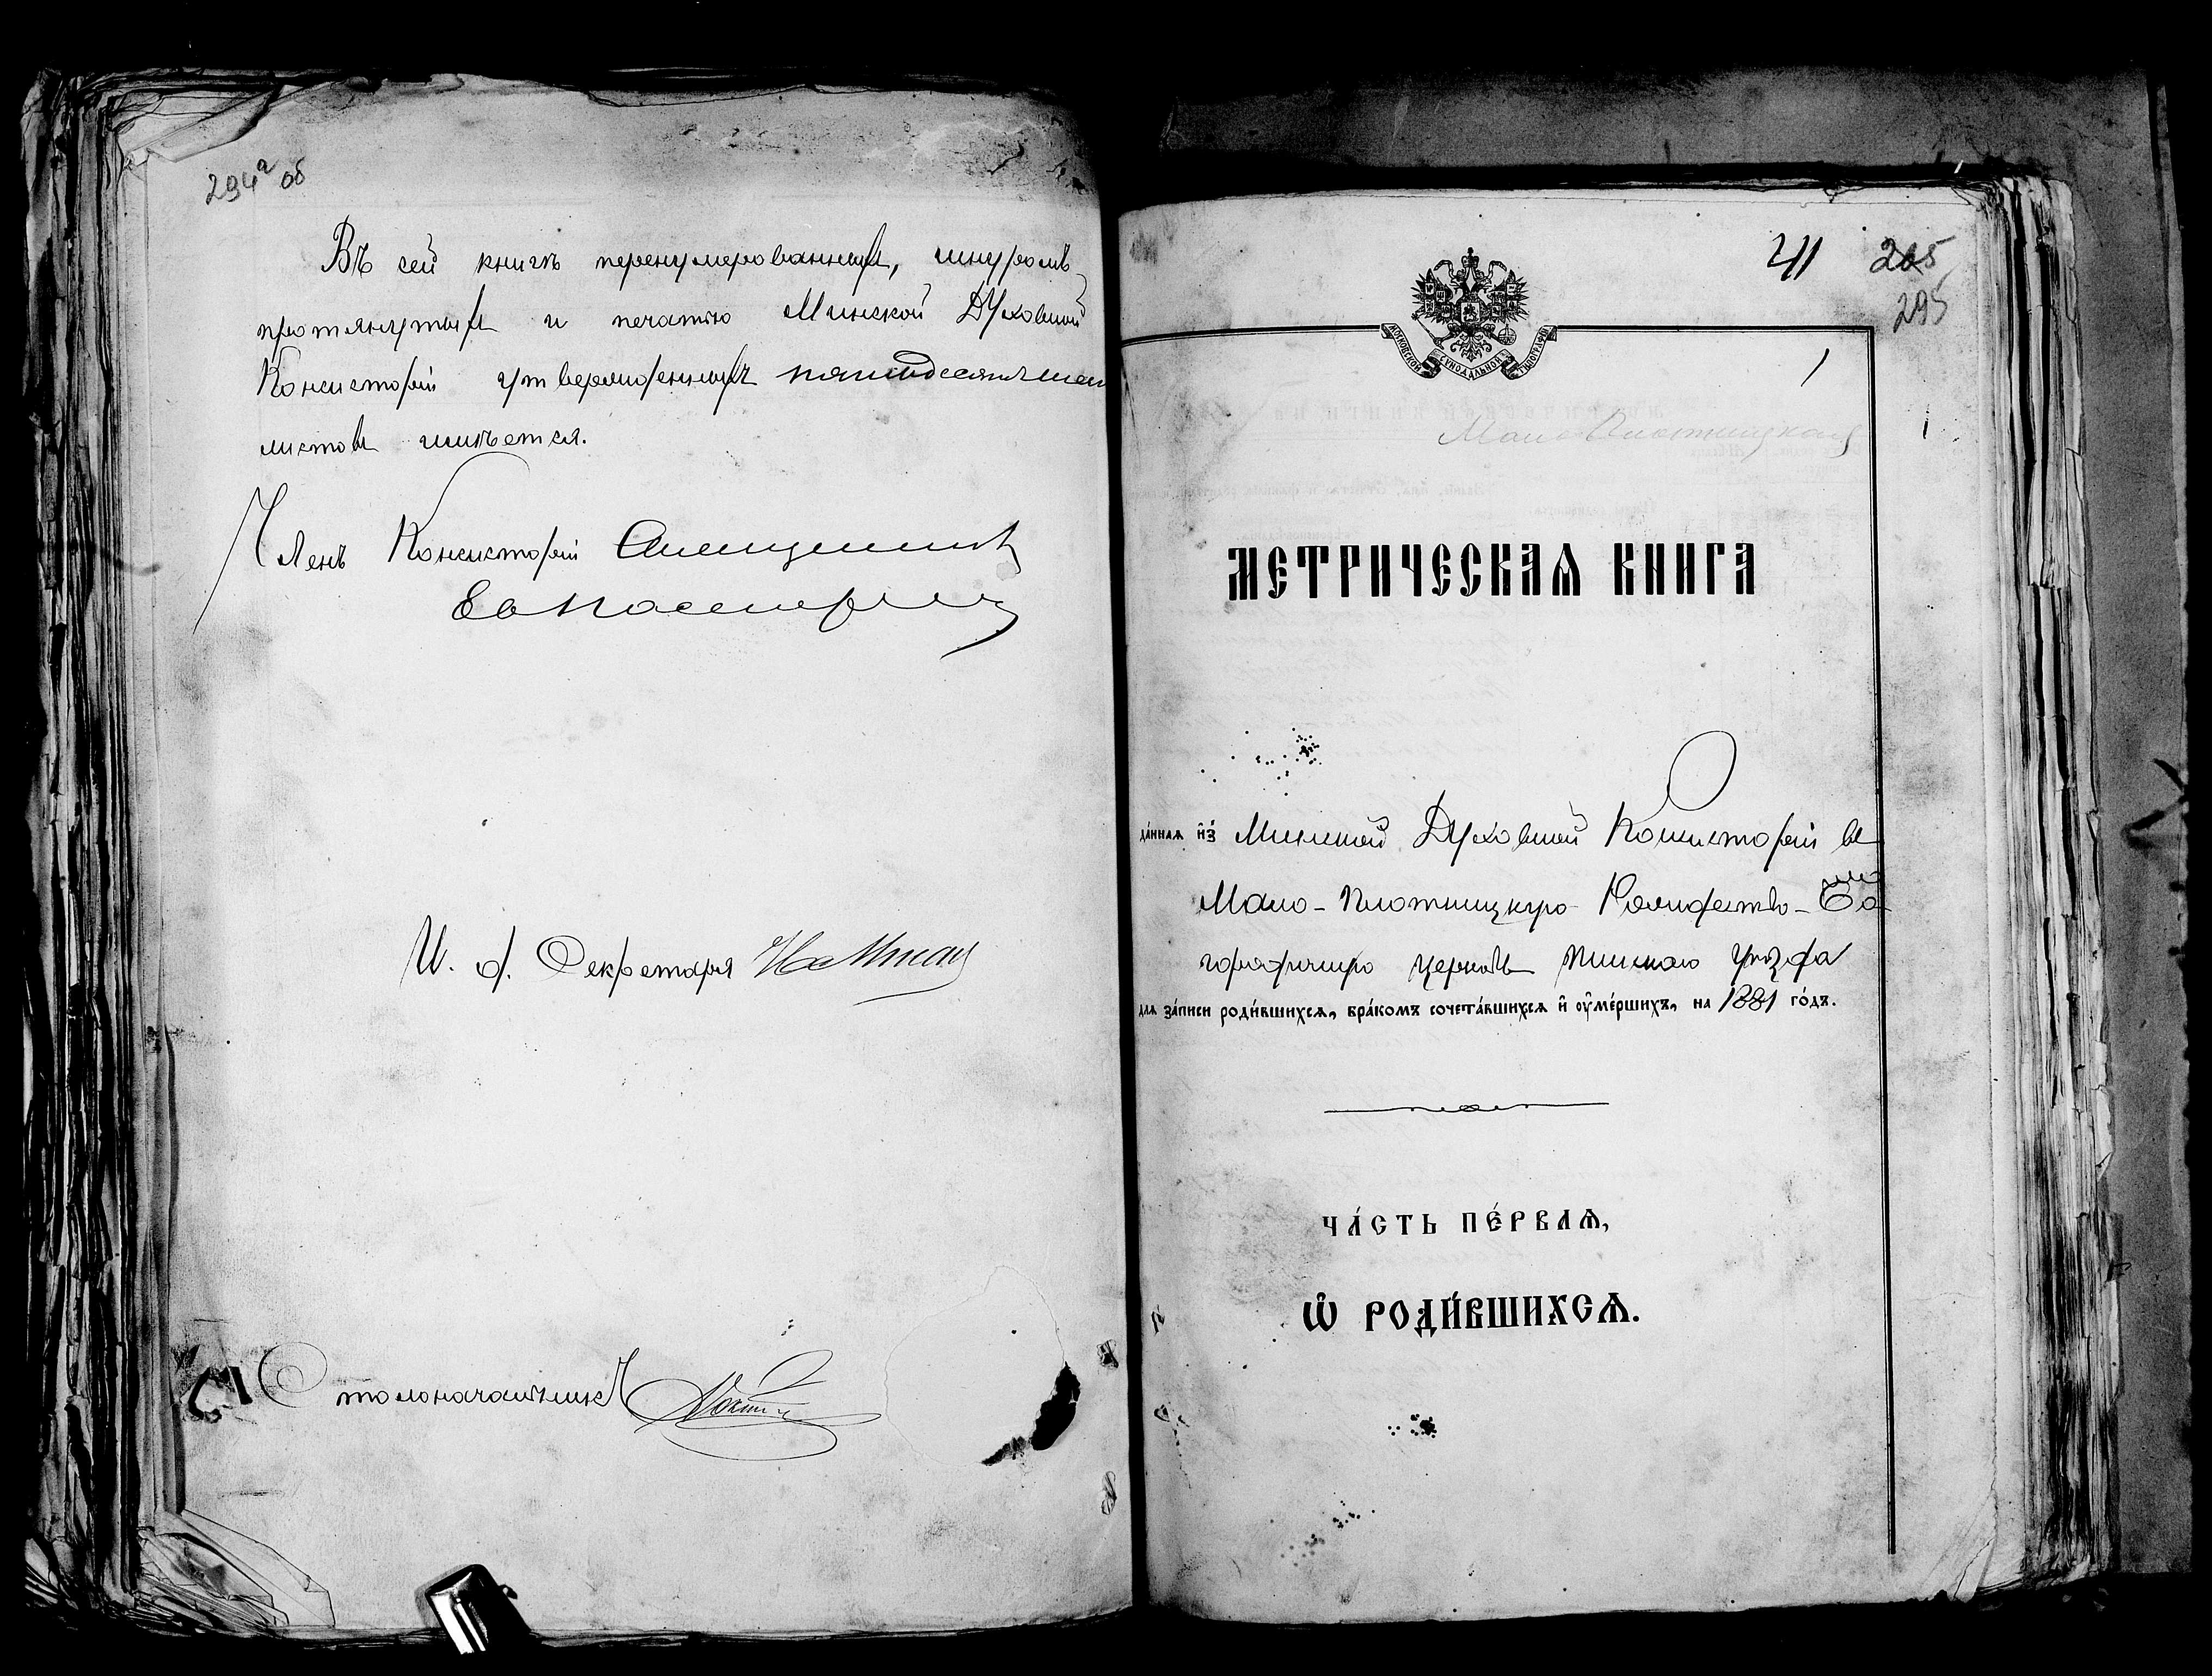 294а об
Въ сей книгѣ перенумерованныхъ, шнуромъ
протянутыхъ и печатью Минской Духовной
Консисторіи утвержденныхъ
листовъ имѣется.
Членъ Консисторіи Священникъ
И. д. Секретаря
Столоначальникъ
41 205
295
МОСКОВСКОЙ СѴНОДАЛЬНОЙ ТѴПОГРАФІИ
1
Мало-Плотницкая
МЕТРИЧЕСКАѦ КНИГА
да́ннаѧ и҆з̾ Минской Духовной Консисторіи въ
Мало-Плотницкую Рождество-Бо-
городичную церковь Пинскаго уѣзда
длѧ за́писи роди́вшихсѧ, бра́комъ сочета́вшихсѧ и҆ ᲂу҆ме́ршихъ, на 1881 го́дъ.
ЧА́СТЬ ПЕ́РВАѦ,
Ѽ РОДИ́ВШИХСѦ.